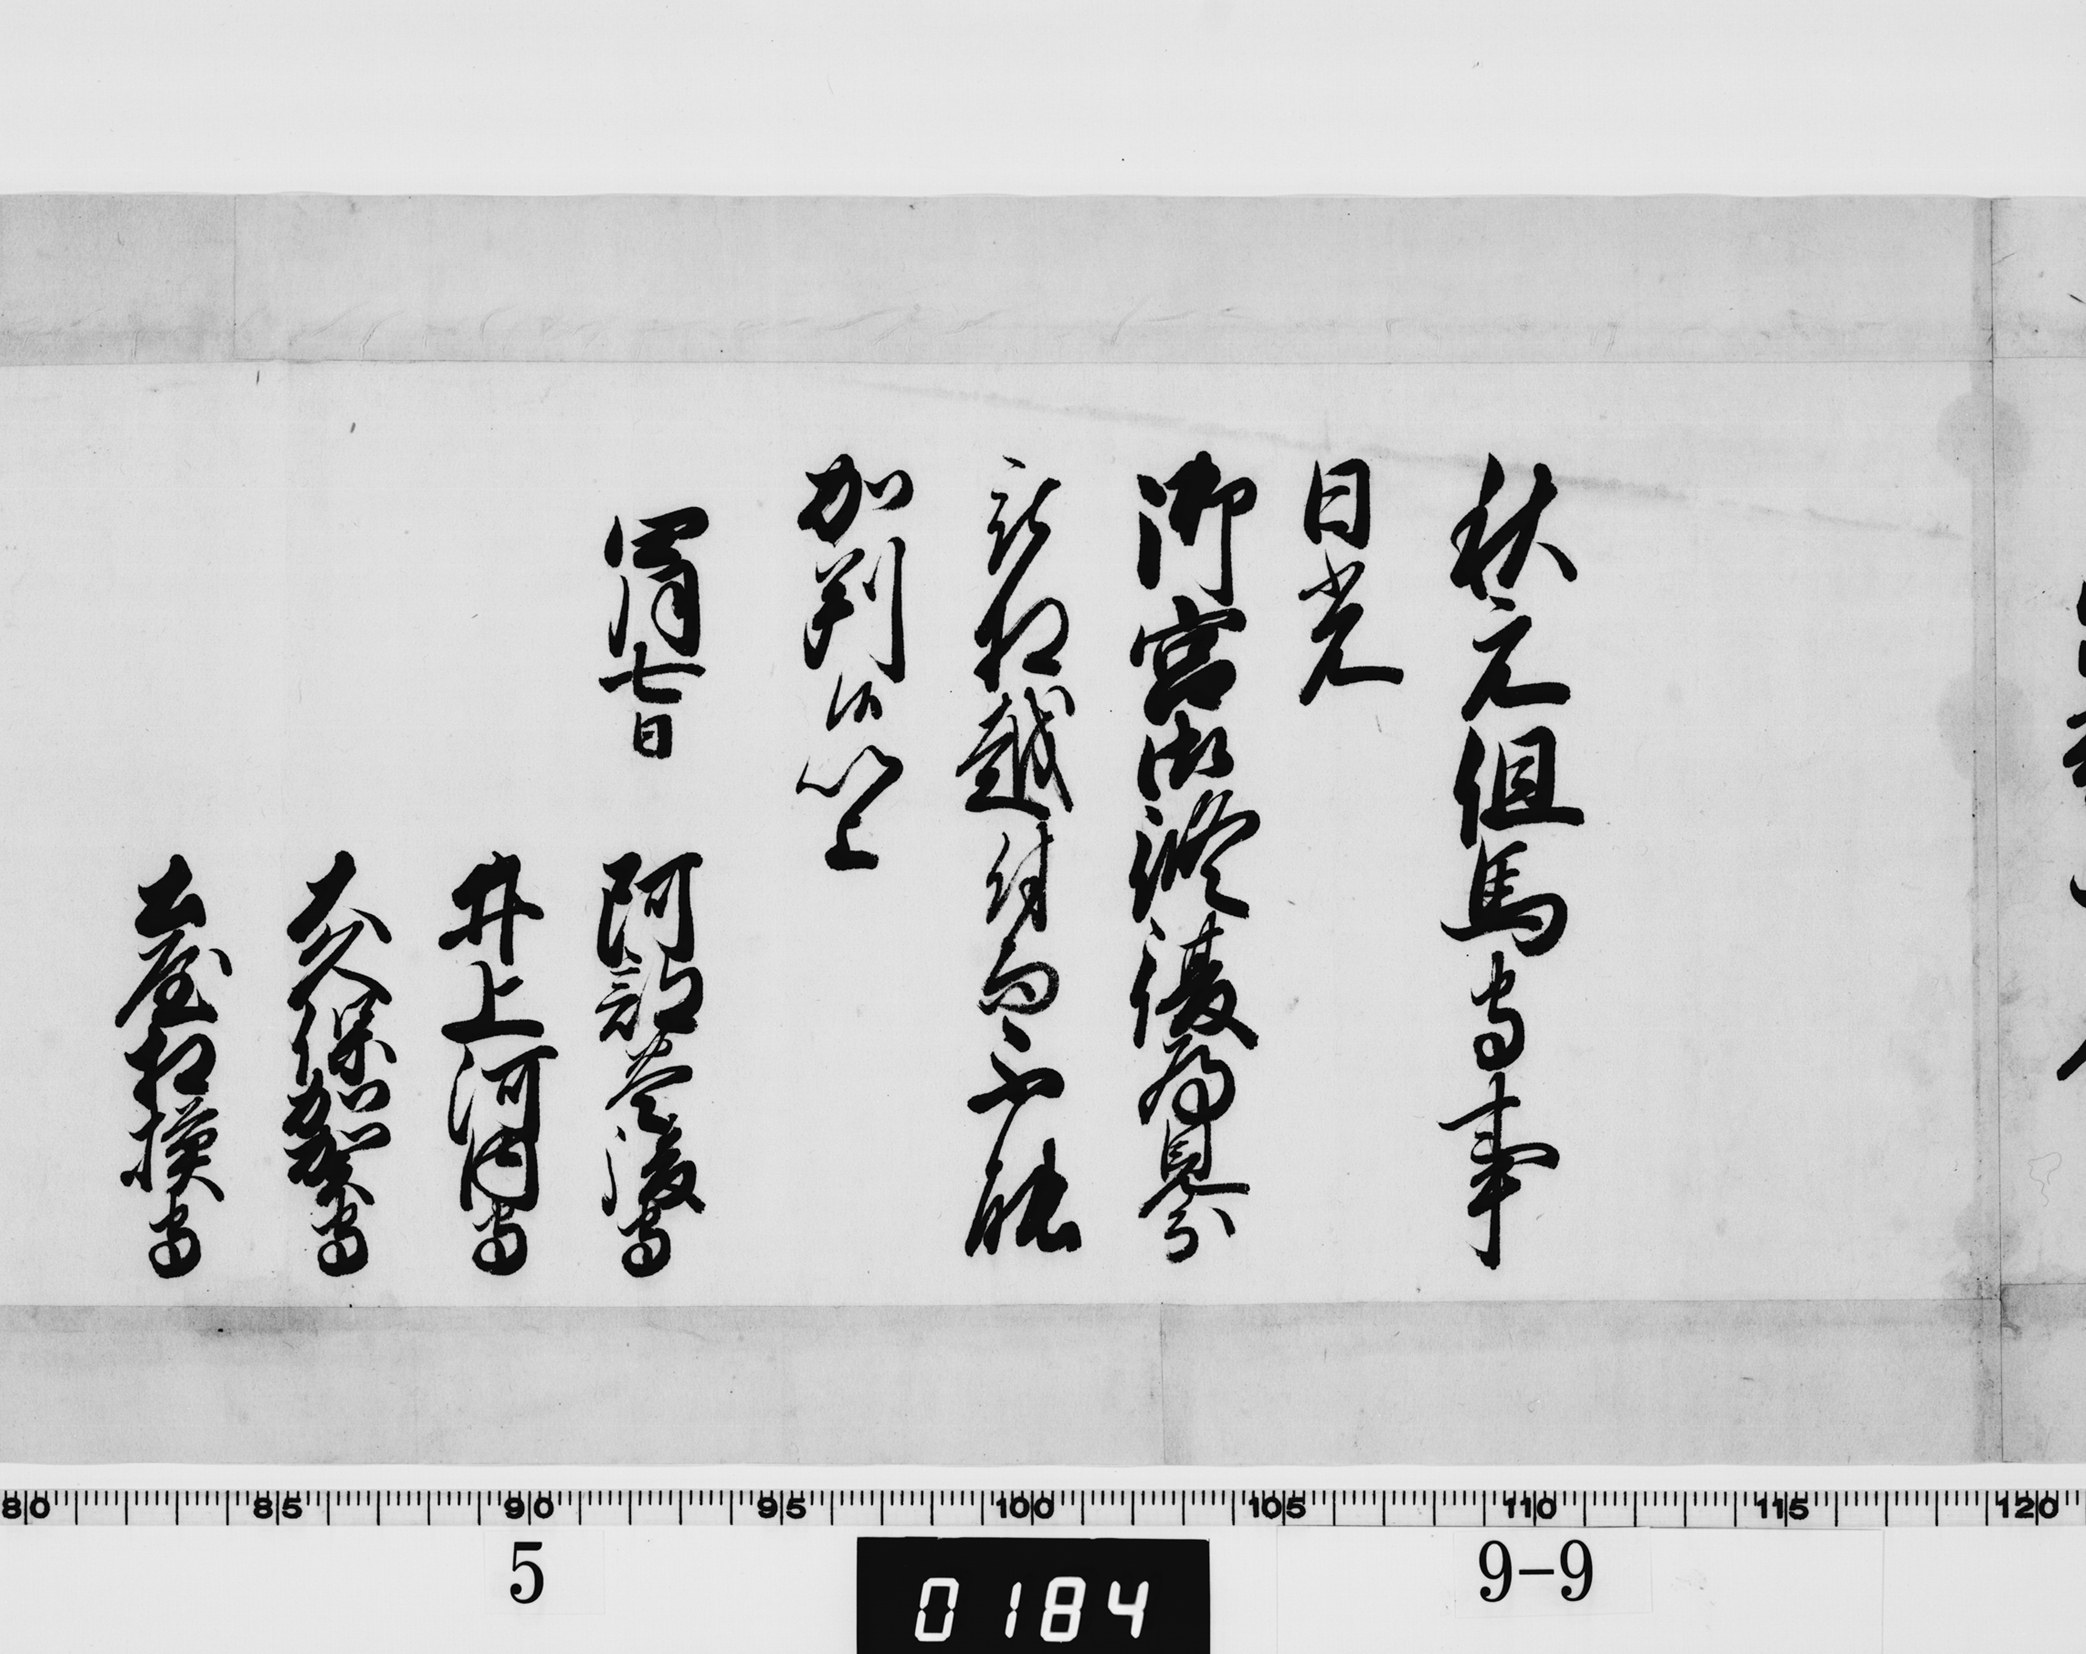 秋元但馬守事
日光
御宮御修復為見分
被相越付而不能
加判候以上
四月七日
阿部豊後守
井上河内守
大久保加賀守
土屋相模守
80 85 90 95 100 105 110 115 120
5
0184
9-9